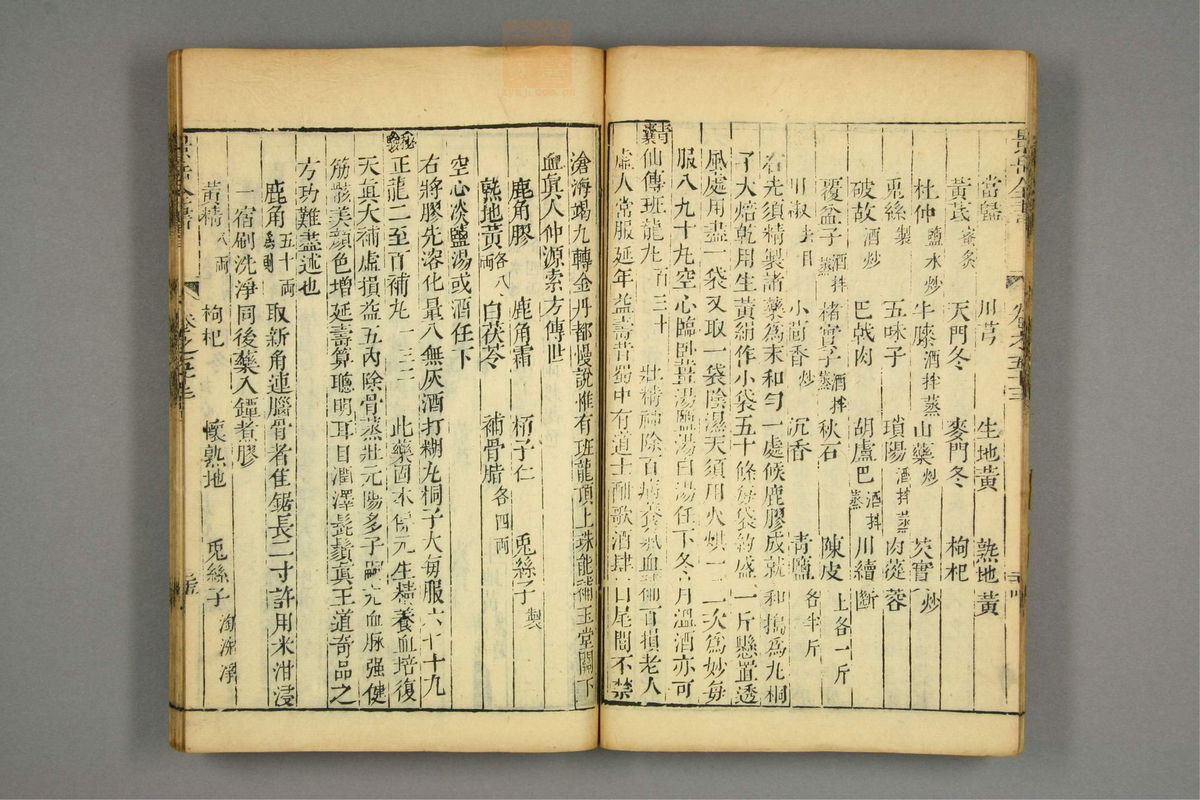 當歸 川芎 生地黃 熟地黃
黃芪蜜炙 天門冬 麥門冬 枸杞
杜仲鹽水炒 牛膝酒拌蒸 山藥炒 芡實炒
兎絲製 五味子 瑣陽酒拌蒸 肉蓯蓉
破故酒炒 巴戟肉 胡盧巴酒拌蒸 川續斷
覆盆子酒拌蒸 楮實子酒拌蒸 秋石 陳皮上各一斤
川椒去目 小茴香炒 沉香 靑鹽各半斤
右先須精製諸藥爲末和勻一處候鹿膠成就和搗爲丸桐
子大焙乾用生黃絹作小袋五十條每袋約盛一斤懸置透
風處用盡一袋又取一袋陰濕天須用火烘一二次爲妙每
服八九十丸空心臨臥薑湯鹽湯白湯任下冬月溫酒亦可
仙傳班龍丸百三十 壯精神除百病養氣血補百損老人
虛人常服延年益壽昔蜀中有道士酣歌酒肆曰尾閭不禁
滄海竭九轉金丹都慢說惟有班龍頂上珠能補玉堂關下
血眞人仲源索方傳世
鹿角膠 鹿角霜 栢子仁 兎絲子製
熟地黃各八兩 白茯苓 補骨脂各四兩
右將膠先溶化量入無灰酒打糊丸桐子大每服六七十丸
空心淡鹽湯或酒任下
正龍二至百補丸一三二 此藥固本保元生精養血培復
天眞大補虛損益五內除骨蒸壯元陽多子嗣充血脉强健
筋骸美顏色增延壽算聰明耳目潤澤髭鬚眞王道奇品之
方功難盡述也
鹿角五十兩爲則 取新角連腦骨者隹鋸長二寸許用米泔浸
一宿刷洗淨同後藥入罈煮膠
黃精八兩 枸杞 懷熟地 兎絲子淘洗淨